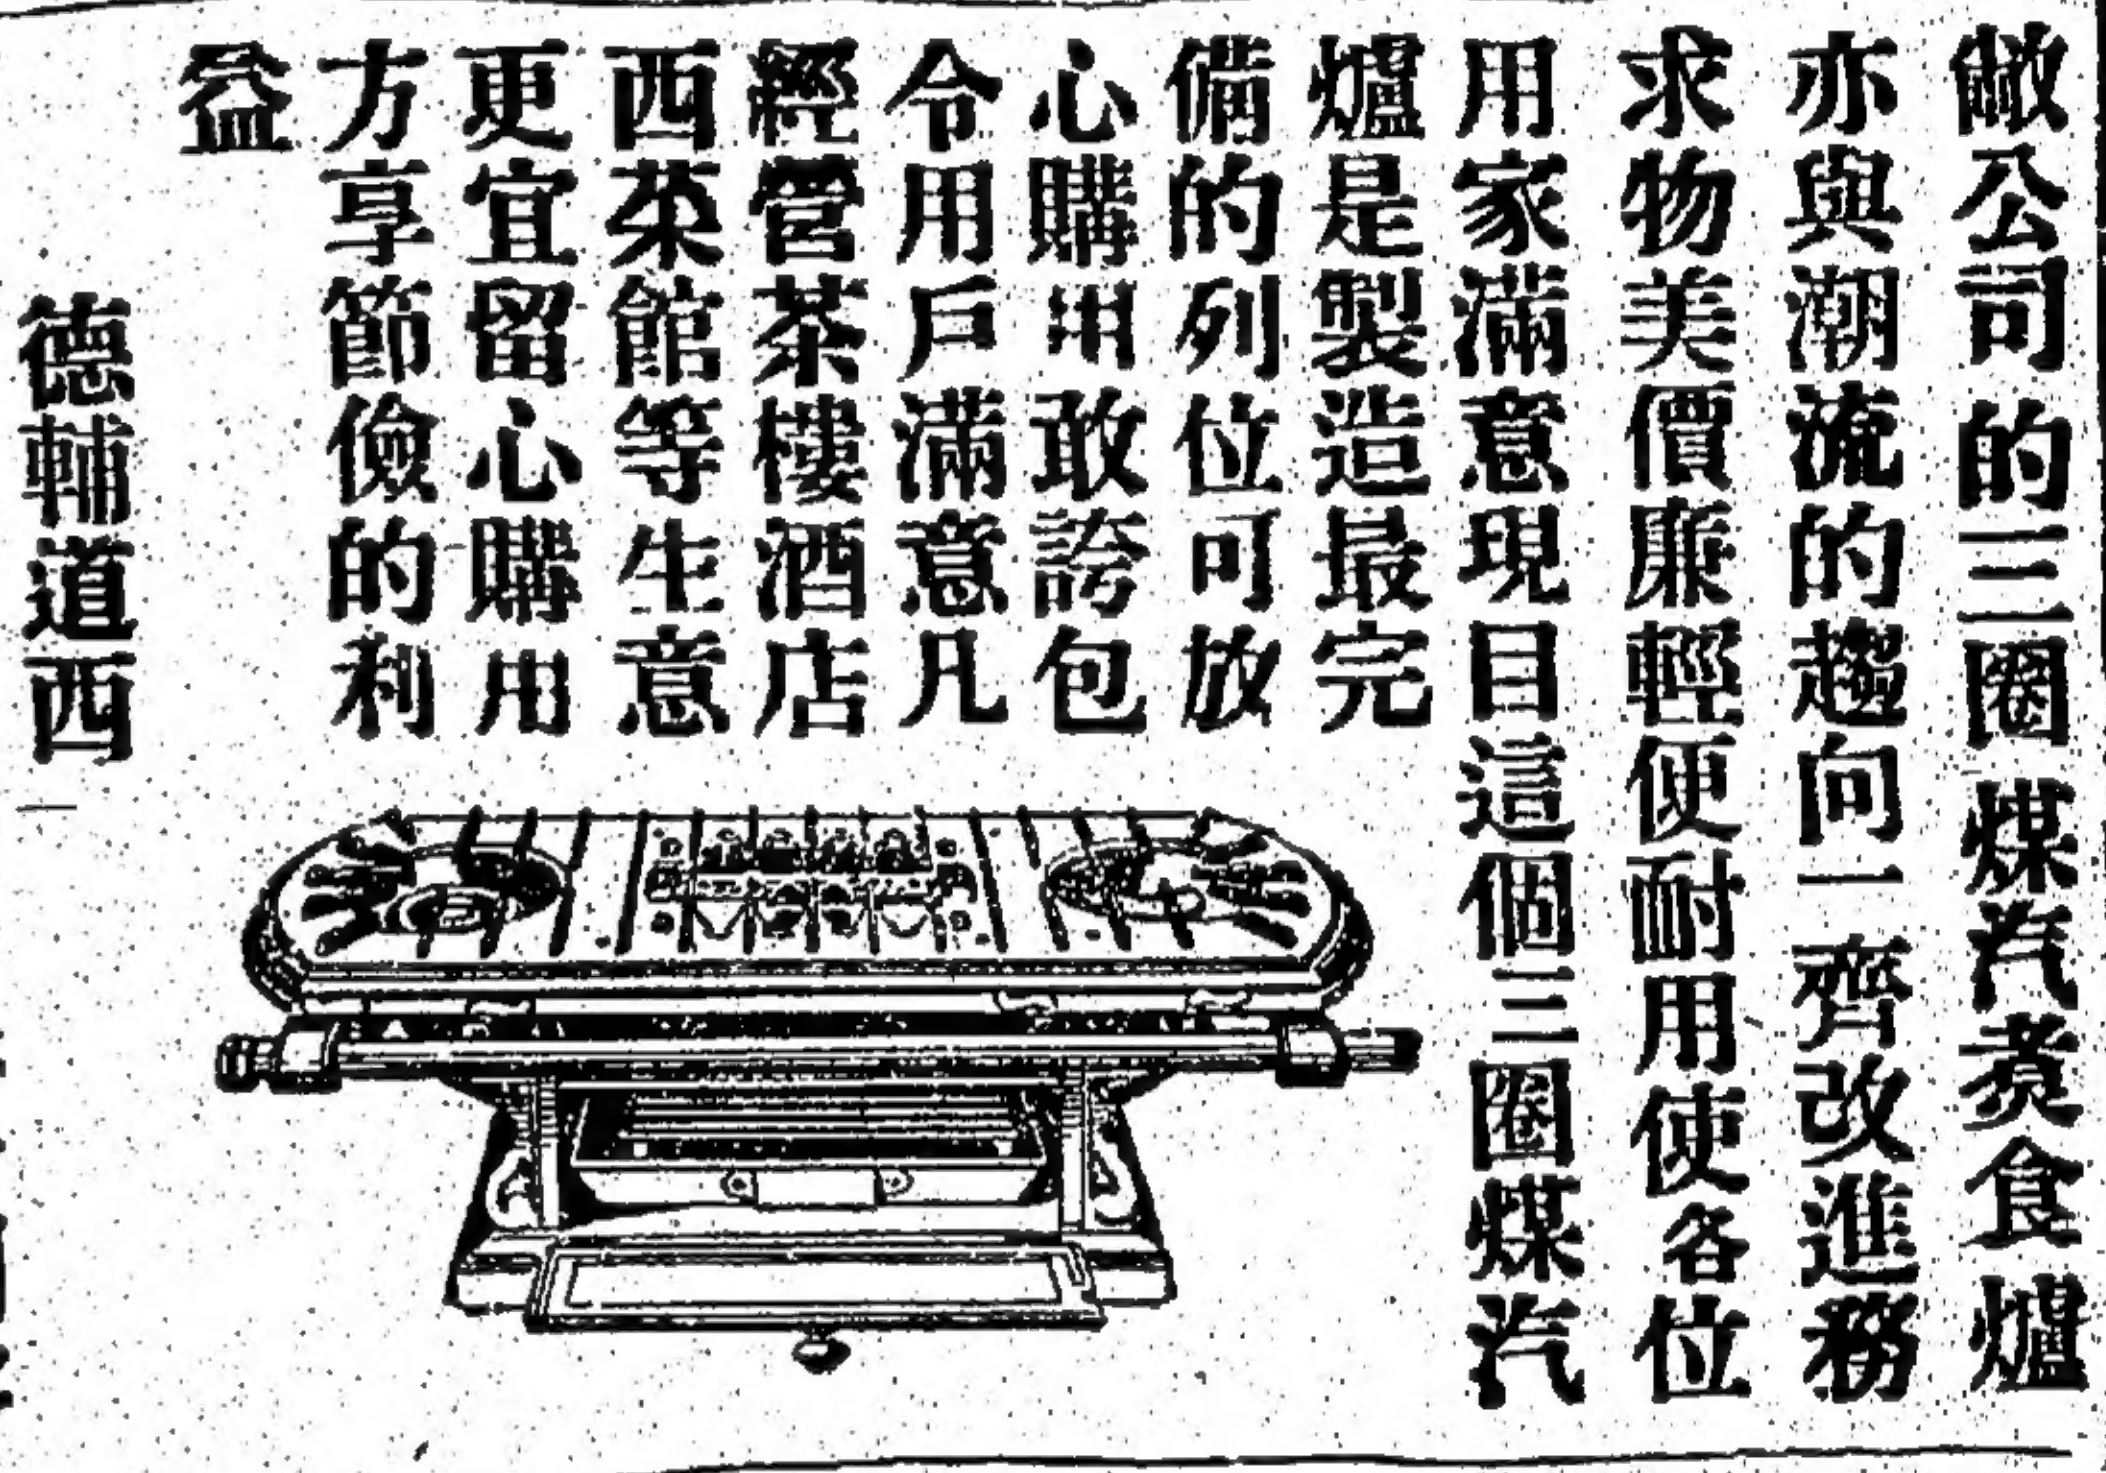 敝公司的三圈煤汽煑食爐
亦與潮流的趨向一齊改進務
求物美價廉輕便耐用使各位
用家滿意現目這個三圈煤汽
爐是製造最完
備的列位可放
心購用敢誇包
令用戶滿意凡
經營茶樓酒店
西菜館等生意
更宜留心購用
方享節儉的利
益
德輔道西